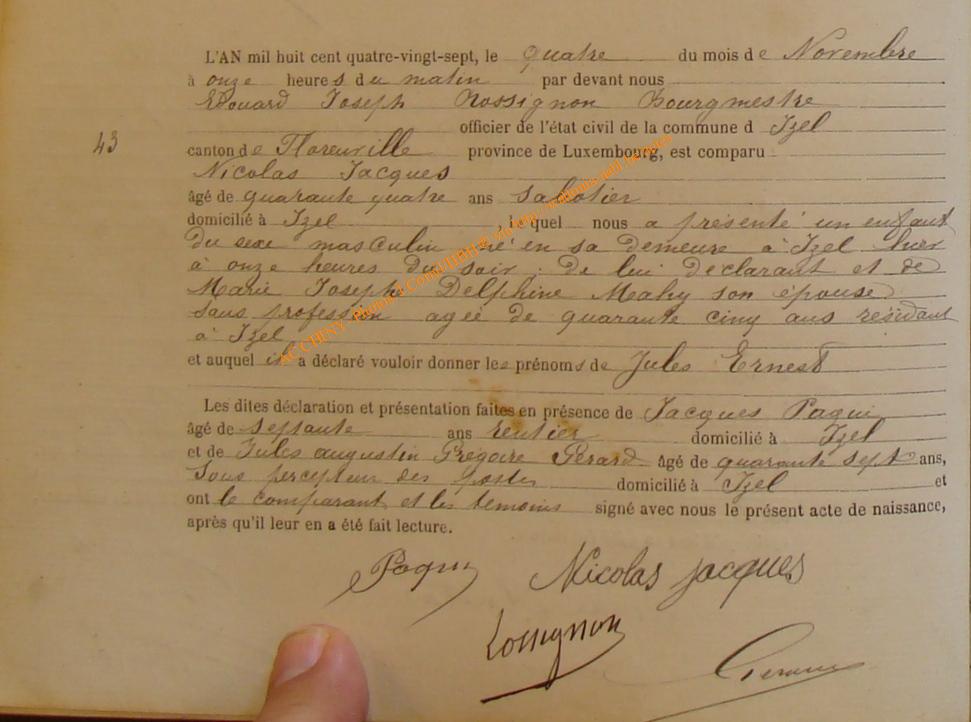 L'AN mil huit cent quatre-vingt-sept, le quatre du mois de Novembre
à onze heures du matin par devant nous
Edouard Joseph Rossignon Bourgmestre
officier de l'état civil de la commune d Izel
43
canton de Florenville province de Luxembourg, est comparu
Nicolas Jacques
âgé de quarante quatre ans sabotier
domicilié à Izel lequel nous a présenté un enfant
du sexe masculin né en sa demeure à Izel hier
à onze heures du soir : de lui déclarant et de
Marie Joseph Delphine Mahy son épouse
sans profession agée de quarante cinq ans résidant
à Izel
et auquel il a déclaré vouloir donner les prénoms de Jules Ernest
Les dites déclaration et présentation faites en présence de Jacques Paquin
âgé de septante ans rentier domicilié à Izel
et de Jules augustin Grégoire Gérard âgé de quarante sept ans,
Sous percepteur des postes domicilié à Izel et
ont le comparant et les témoins signé avec nous le présent acte de naissance,
après qu'il leur en a été fait lecture.
Paquin Nicolas jacques
Rossignon